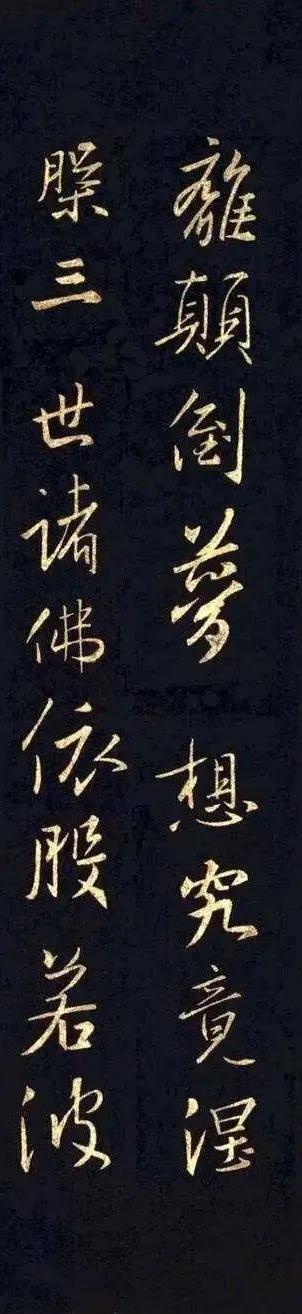 離顛倒夢想究竟涅
槃三世諸佛依般若波